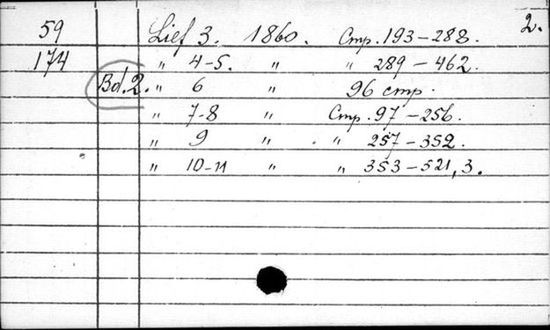 2.
59 Lief 3. 1860. Стр. 193-288.
174 " 4-5. " " 289-462.
Bd. 2. " 6 " 96 стр.
" 7-8 " Стр. 97-256.
" 9 " " 257-352.
" 10-11 " " 353-521, 3.